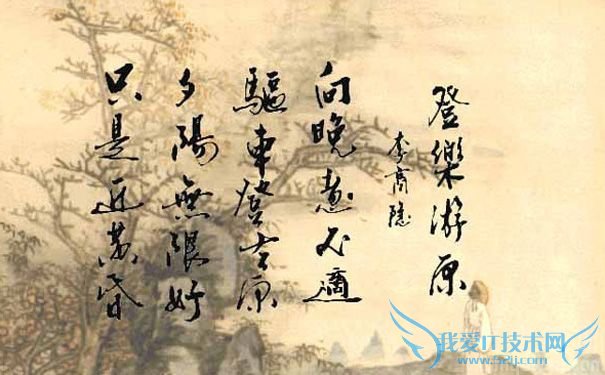 登樂游原
李商隱
向晚意不適
驅車登古原
夕陽無限好
只是近黄昏
我爱IT技术网
www.52ij.com